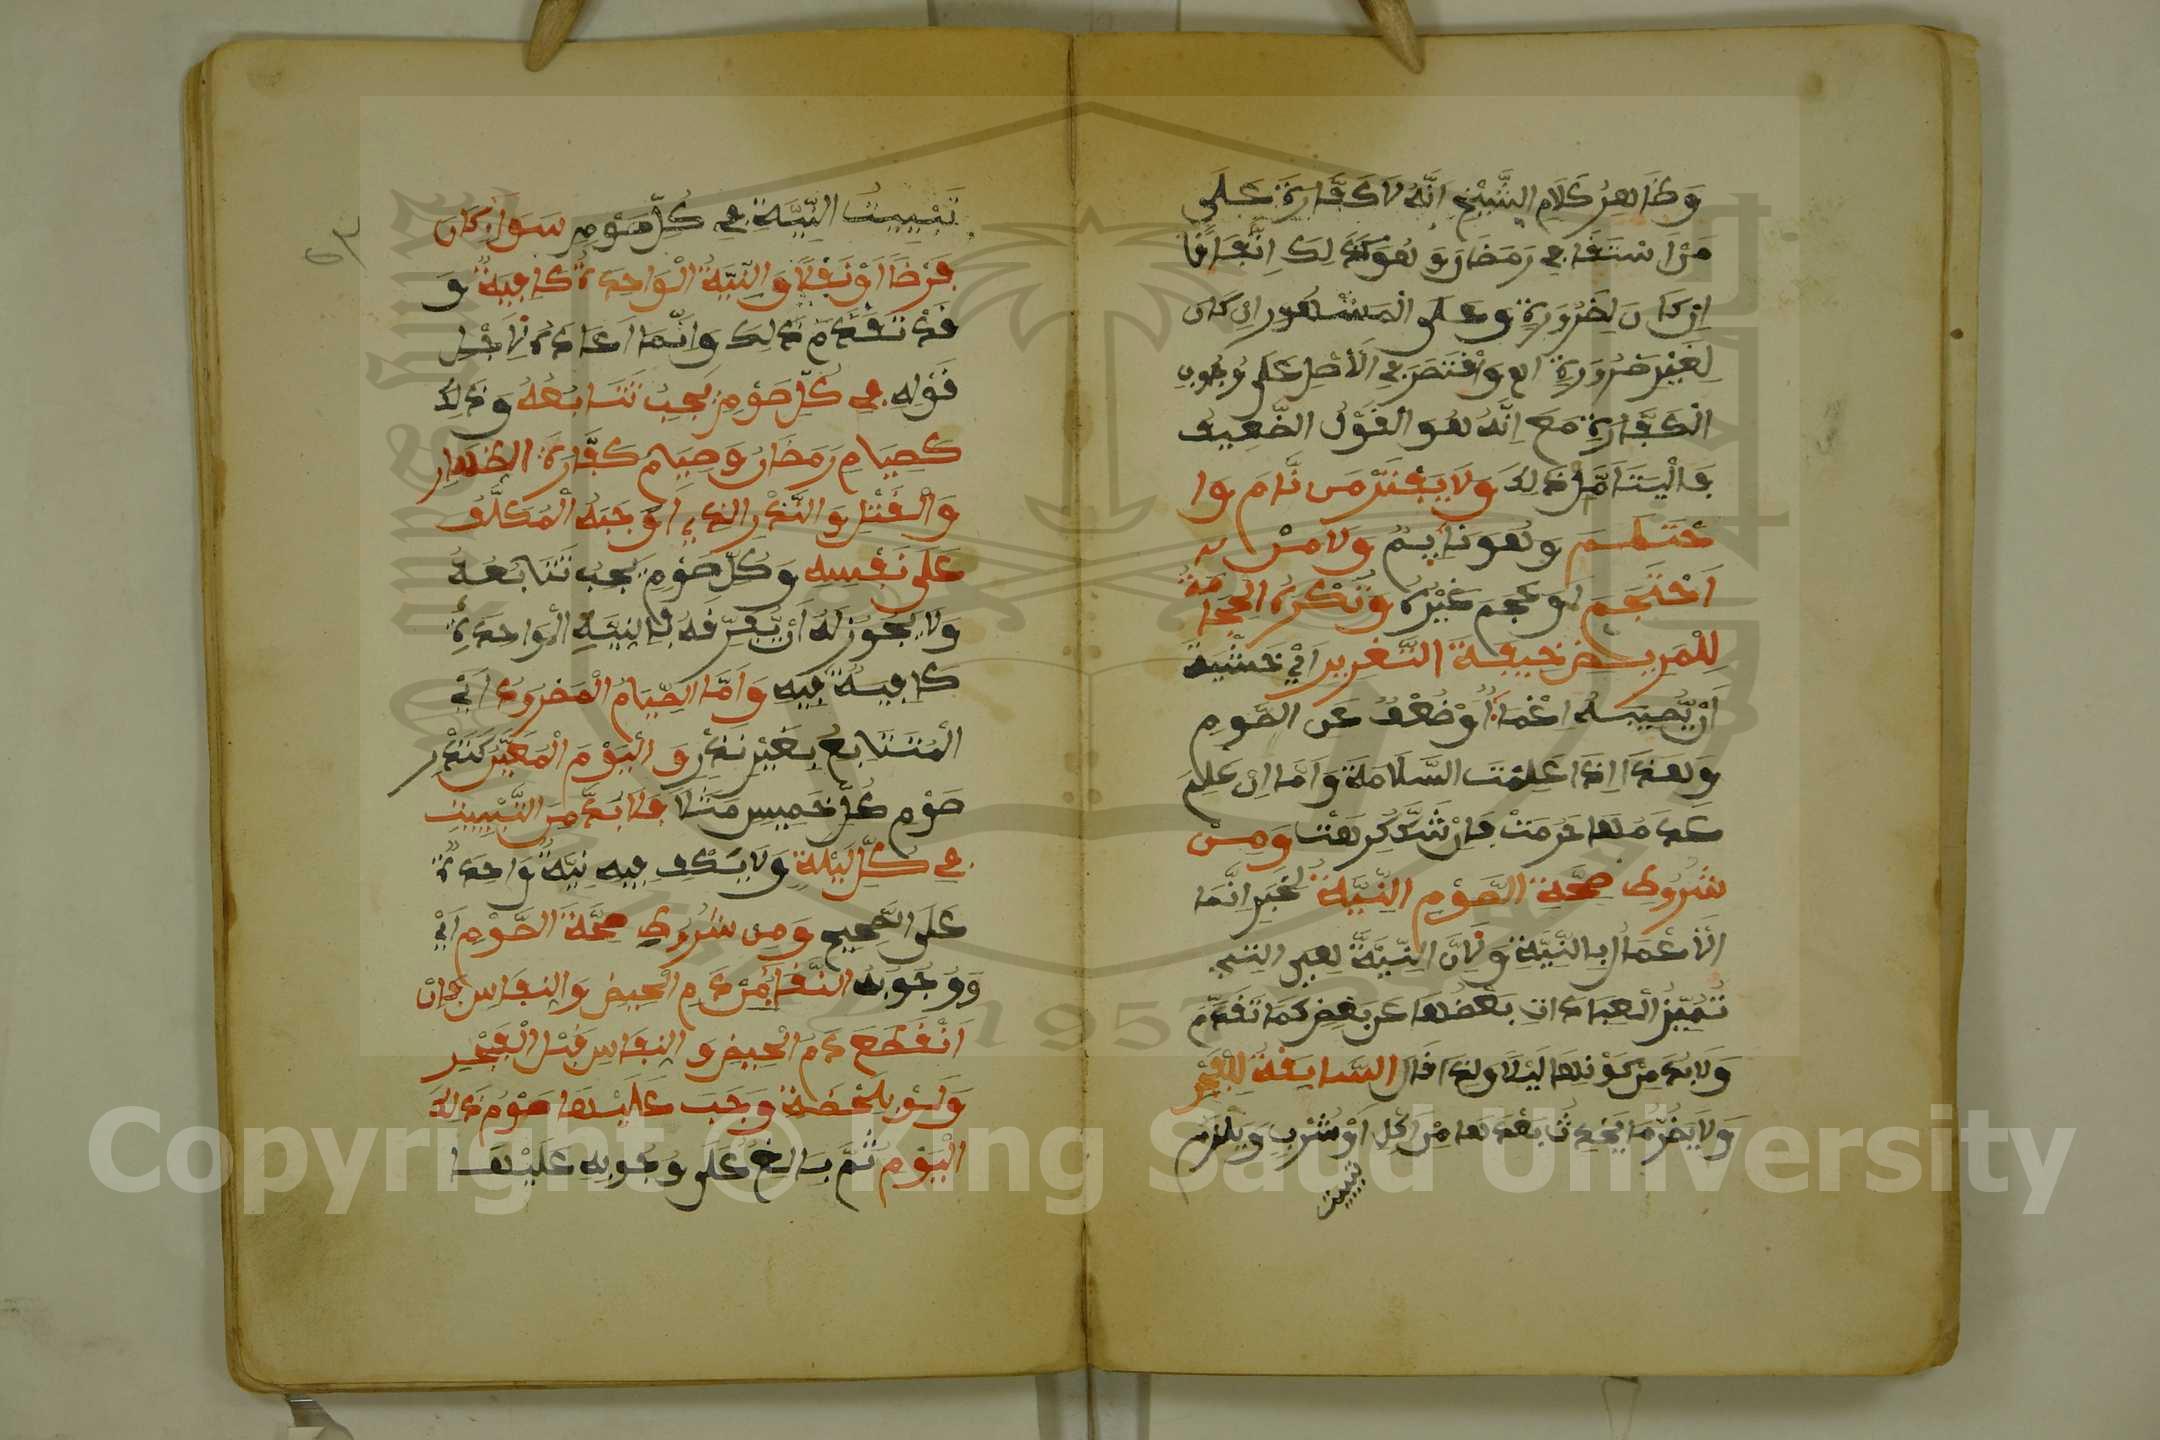 وَظَاهِرُ كَلَامِ الشَّيْخِ اَنَّهُ لَا كَفَّارَةَ عَلَى
مَنِ اسْتَقَا فِي رَمَضَانَ وَهُوَ كَذَلِكَ اِتِّفَاقًا
اِنْ كَانَ لِضَرُورَةٍ وَعَلَى الْمَشْهُورِ اِنْ كَانَ
لِغَيْرِ ضَرُورَةٍ وَاقْتَصَرَ فِي الْأَصْلِ عَلَى وُجُوبِ
الْكَفَّارَةِ مَعَ اِنَّهُ هُوَ الْقَوْلُ الضَّعِيفُ
فَالْيَتَأَمَّلْ ذَلِكَ وَلَا يَفْطُرُ مَنْ نَّامَ وَا
حْتَلَمَ وَهُوَ نَايِمٌ وَلَا مَنْ
اَحْتَجَمَ اَوْ حَجَمَ غَيْرُهُ وَتُكْرَهُ الْحِجَامَةُ
لِلْمَرِيضِ خِيفَةَ التَّغْرِيرِ اَيْ خَشْيَةَ
اَنْ يُّصِيبَهُ اِغْمَاءٌ اَوْ ضُعْفٌ عَنِ الصَّوْمِ
وَهَذَا اِذَا عَلِمْتَ السَّلَامَةَ وَاَمَّا اِنْ عَلِمَ
عَدَمُهَا حَرُمَتْ فَاِنْ شَكَّ كُرِهَتْ وَمِنْ
شُرُوطِ صِحَّةِ الصَّوْمِ النِّيَّةُ لِخَبَرِ اِنَّمَا
الْأَعْمَالُ بِالنِّيَّةِ وَلِأَنَّ النِّيَّةَ هِيَ الَّتِي
تُمَيِّزُ الْعِبَادَاتِ بَعْضُهَا عَنْ بَعْضٍ كَمَا تَقَدَّمَ
وَلَا بُدَّ مِنْ كَوْنِهَا لَيْلًا وَلِذَا قَالَ السَّابِقَةُ لِلْفَجْرِ
وَلَا يَضُرُّ مَا يَحْدُثُ بَعْدَهَا مِنْ اَكْلٍ اَوْ شُرْبٍ وَيَلْزَمُ
تبييت
تَبْيِيتُ النِّيَّةِ فِي كُلِّ صَوْمٍ سَوَاءٌ كَانَ
فَرْضًا اَوْ نَفْلًا وَالنِّيَّةُ الْوَاحِدَةُ كَافِيَةٌ وَ
قَدْ تَقَدَّمَ ذَلِكَ وَاِنَّمَا اَعَادَهُ لِاَجْلِ
قَوْلِهِ فِي كُلِّ صَوْمٍ يَجِبُ تَتَابُعُهُ وَذَلِكَ
كَصِيَامِ رَمَضَانَ وَصِيَامِ كَفَّارَةِ الظِّهَارِ
وَالْقَتْلِ وَالنَّذْرِ الَّذِي اَوْجَبَهُ الْمُكَلَّفُ
عَلَى نَفْسِهِ وَكُلُّ صَوْمٍ يَجِبُ تَتَابُعُهُ
وَلَا يَجُوزُ لَهُ اَنْ يُّفَرِّقَهُ فَالنِيَّةُ الْوَاحِدَةُ
كَافِيَةٌ فِيهِ وَاَمَّا الصِّيَامُ الْمَسْرُودُ اَيْ
الْمُتَتَابِعُ بِغَيْرِ نَذْرٍ وَالْيَوْمَ الْمُعَيَّنُ كَنَذْرِ
صَوْمِ كُلِّ خَمِيسٍ مَثَلًا فَلَا بُدَّ مِنَ التَّبْيِيتِ
فِي كُلِّ لَيْلَةٍ وَلَا يَكْفِ فِيهِ نِيَّةٌ وَاحِدَةٌ
عَلَى الصَّحِيحِ وَمِنْ شُرُوطِ صِحَّةِ الصَّوْمِ اَيْ
وَوُجُوبِهِ النَّقَاءُ مِنْ دَمِ الْحَيْضِ وَالنِفَاسِ فَاِنْ
اَنْقَطَعَ دَمُ الْحَيْضِ وَالنِفَاسِ قَبْلَ الْفَجْرِ
وَلَوْ بِلَحْظَةٍ وَجَبَ عَلَيْهَا صَوْمُ ذَلِكَ
الْيَوْمِ ثُمَّ بَالَغَ عَلَى وُجُوبِهِ عَلَيْهَا
Copyright © King Saud University
1957